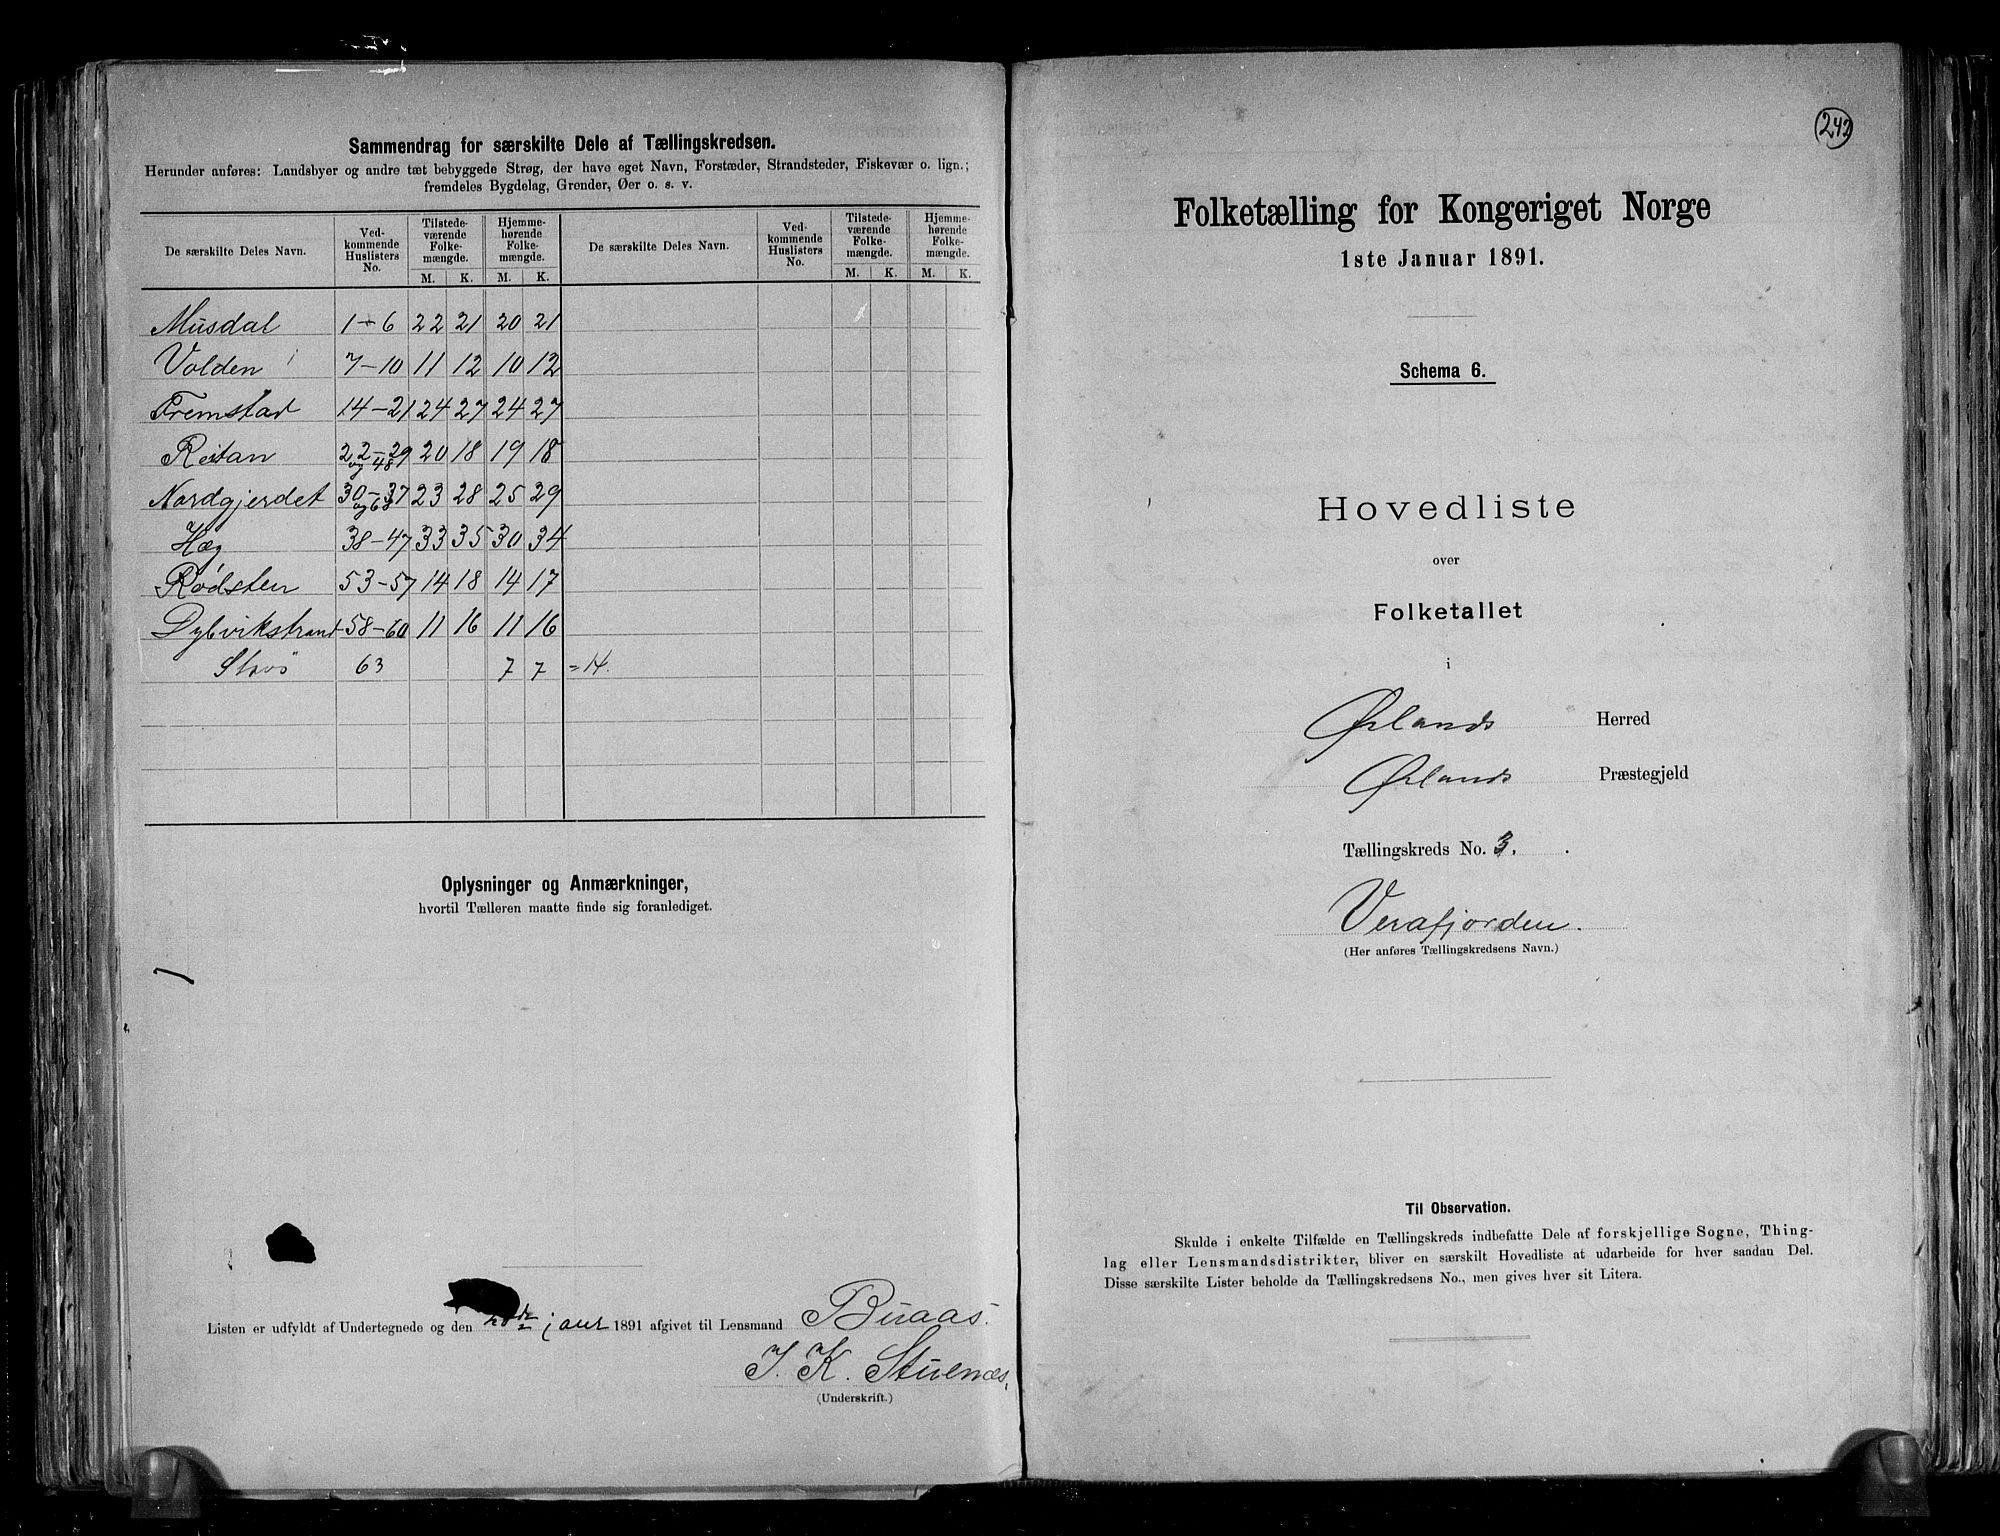 Sammendrag for særskilte Dele af Tællingskredsen.
Herunder anføres: Landsbyer og andre tæt bebyggede Strøg, der have eget Navn, Forstæder, Strandsteder, Fiskevær o. lign.;
fremdeles Bygdelag, Grender, Øer o. s. v.
De særskilte Deles Navn. Vedkommende Huslisters No. Tilstedeværende Folkemængde. M. K. Hjemmehørende Folkemængde. M. K. De særskilte Deles Navn. Vedkommende Huslisters No. Tilstedeværende Folkemængde. M. K. Hjemmehørende Folkemængde. M. K.
Musdal 1-6 22 21 20 21
Volden 7-10 11 12 10 12
Fremstad 14-21 24 27 24 27
Reitan 22-29 og 48 20 18 19 18
Nordgjerdet 30-37 og 68 23 28 25 29
Hæg 38-47 33 35 30 34
Rødsten 53-57 14 18 14 17
Dybvikstrand 58-60 11 16 11 16
63 7 7 =14.
Oplysninger og Anmærkninger,
hvortil Tælleren maatte finde sig foranlediget.
Listen er udfyldt af Undertegnede og den januar 1891 afgivet til Lensmand Buaas.
J. K. Stuenæs,
(Underskrift.)
242
Folketælling for Kongeriget Norge
1ste Januar 1891.
Schema 6.
Hovedliste
over
Folketallet
i
Ørlands Herred
Ørlands Præstegjeld
Tællingskreds No. 3.
Verafjorden.
(Her anføres Tællingskredsens Navn.)
Til Observation.
Skulde i enkelte Tilfælde en Tællingskreds indbefatte Dele af forskjellige Sogne, Thing-
lag eller Lensmandsdistrikter, bliver en særskilt Hovedliste at udarbeide for hver saadan Del.
Disse særskilte Lister beholde da Tællingskredsens No., men gives hver sit Litera.